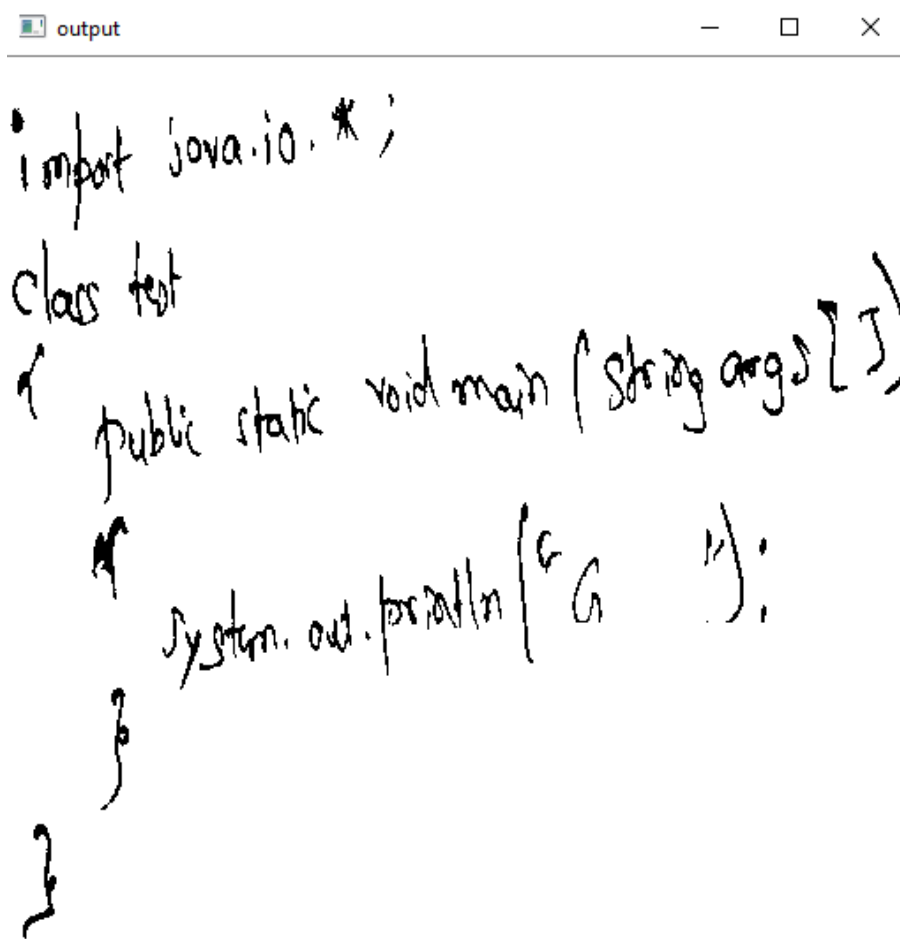 output
import java.io.*;
class test
{
public static void main (String args[])
{
System.out.println("G ");
}
}